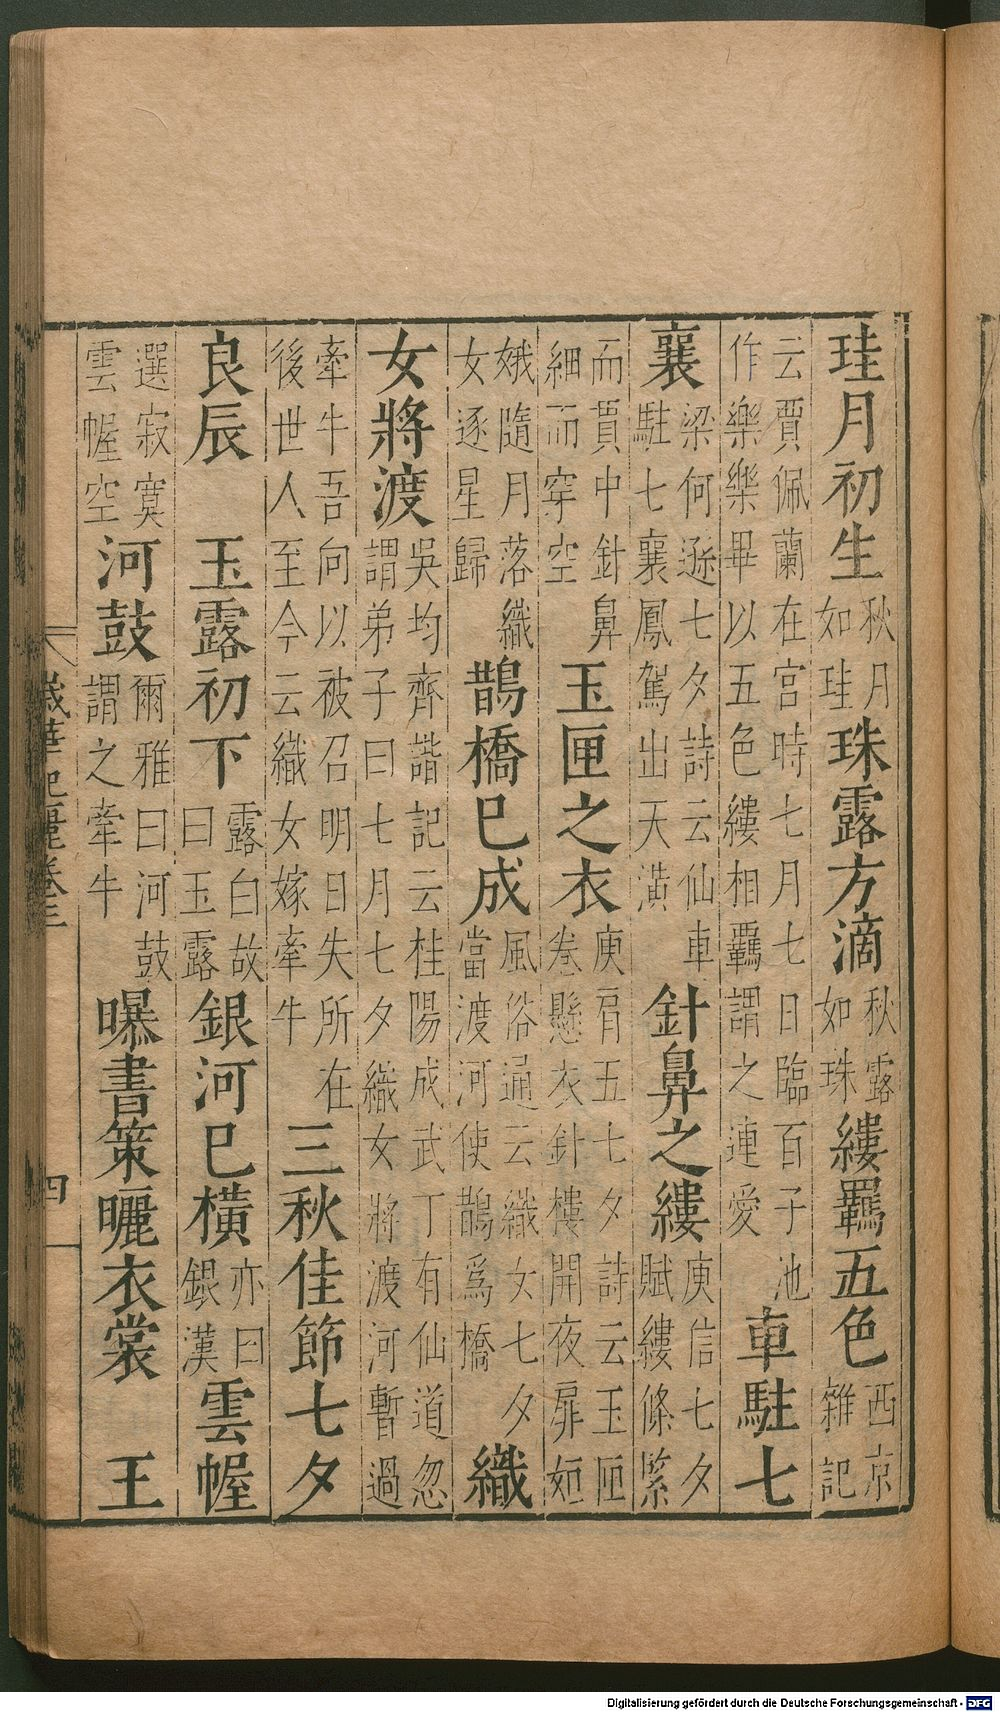 珪月初生秋月如珪珠露方滴秋露如珠縷羈五色西京雜記
云賈佩蘭在宮時七月七日臨百子池作樂樂畢以五色縷相羈謂之連愛車駐七
襄梁何遜七夕詩云仙車駐七襄鳳駕出天潢針鼻之縷庚信七夕賦縷條緊
而貫中針鼻細而穿空玉匣之衣庚肩五七夕詩云玉匣卷懸衣針樓開夜扉姮
娥隨月落織女逐星歸鵲橋已成風俗通云織女七夕當渡河使鵲爲橋織
女將渡吳均齊諧記云桂陽成武丁有仙道忽謂弟子曰七月七夕織女將渡河暫過
牽牛吾向以被召明日失所在後世人至今云織女嫁牽牛三秋佳節七夕
良辰 玉露初下露白故曰玉露銀河已橫亦曰銀漢雲幄
選寂寞雲幄空河鼓爾雅曰河鼓謂之牽牛曝書策曬衣裳 王
歲華紀麗卷三 四
Digitalisierung gefördert durch die Deutsche Forschungsgemeinschaft - DFG